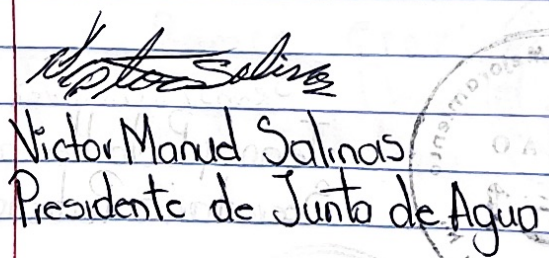 Victor Salinas
Victor Manuel Salinas
Presidente de Junta de Agua